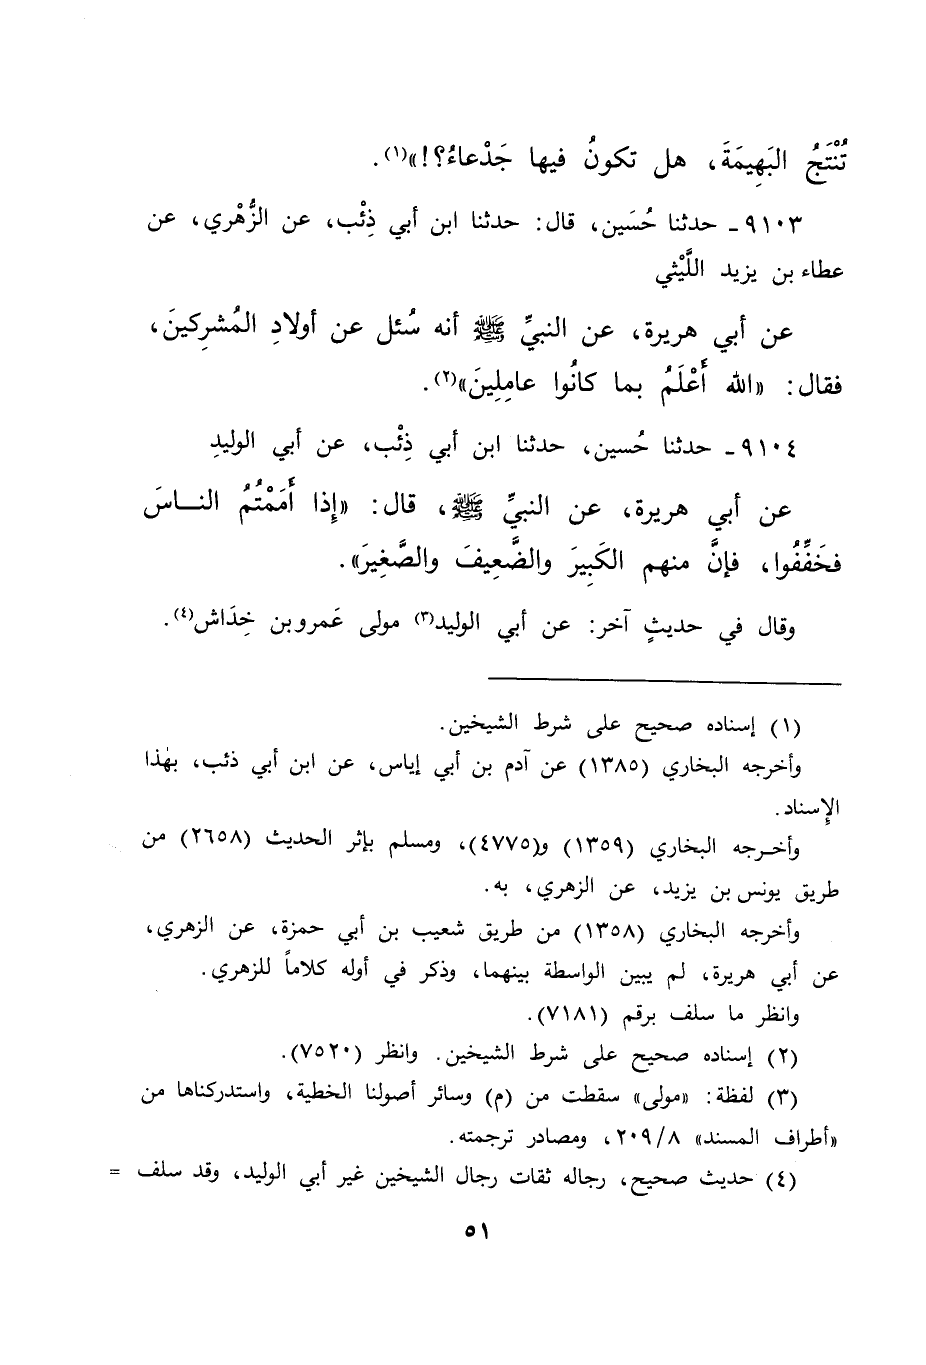 تُنْتَجُ البَهِيمَةَ، هل تكونُ فيها جَدْعاءُ؟!»(١).
٩١٠٣ـ حدثنا حُسَين، قال: حدثنا ابن أبي ذِئْب، عن الزُّهْري، عن
عطاء بن يزيد اللَّيْثي
عن أبي هريرة، عن النبيِّ ﷺ أنه سُئل عن أولادِ المُشركِينَ،
فقال: «الله أَعْلَمُ بما كانُوا عامِلِينَ»(٢).
٩١٠٤ـ حدثنا حُسين، حدثنا ابن أبي ذِئْب، عن أبي الوليدِ
عن أبي هريرة، عن النبيِّ ﷺ، قال: «إِذا أَمَمْتُمُ النــاسَ
فخَفِّفُوا، فإنَّ منهم الكَبِيرَ والضَّعِيفَ والصَّغِيرَ».
وقال في حديثٍ آخر: عن أبي الوليد(٣) مولى عَمرو بن خِدَاش(٤).
(١) إسناده صحيح على شرط الشيخين.
وأخرجه البخاري (١٣٨٥) عن آدم بن أبي إياس، عن ابن أبي ذئب، بهٰذا
الإِسناد.
وأخـرجه البخاري (١٣٥٩) و(٤٧٧٥)، ومسلم بإثر الحديث (٢٦٥٨) من
طريق يونس بن يزيد، عن الزهري، به.
وأخرجه البخاري (١٣٥٨) من طريق شعيب بن أبي حمزة، عن الزهري،
عن أبي هريرة، لم يبين الواسطة بينهما، وذكر في أوله كلاماً للزهري.
وانظر ما سلف برقم (٧١٨١).
(٢) إسناده صحيح على شرط الشيخين. وانظر (٧٥٢٠).
(٣) لفظة: «مولى» سقطت من (م) وسائر أصولنا الخطية، واستدركناها من
«أطراف المسند» ٢٠٩/٨، ومصادر ترجمته.
(٤) حديث صحيح، رجاله ثقات رجال الشيخين غير أبي الوليد، وقد سلف =
٥١